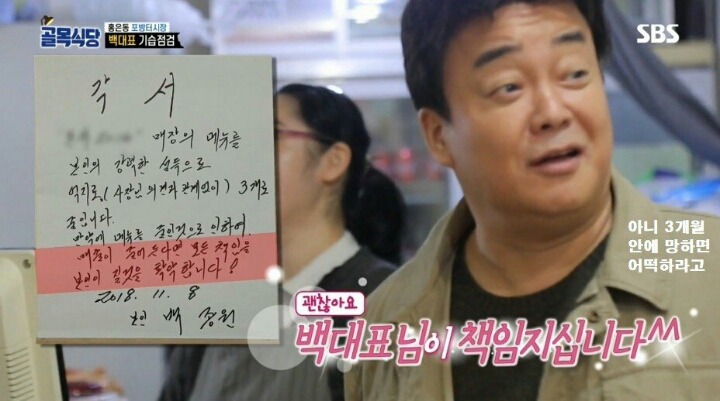 골목식당
홍은동 포방터시장
백대표 기습점검
SBS
각 서
매장의 메뉴를
본인의 강력한 설득으로
억지로,(사장님 의견과 관계없이) 3개로
줄입니다.
만약에 메뉴를 줄인것으로 인하여,
매출이 줄어든다면 모든 책임을
본인이 질것을 확약합니다!
2018. 11. 8
본인 백 종원
아니 3개월
안에 망하면
어떡하라고
괜찮아요
백대표님이 책임지십니다^^